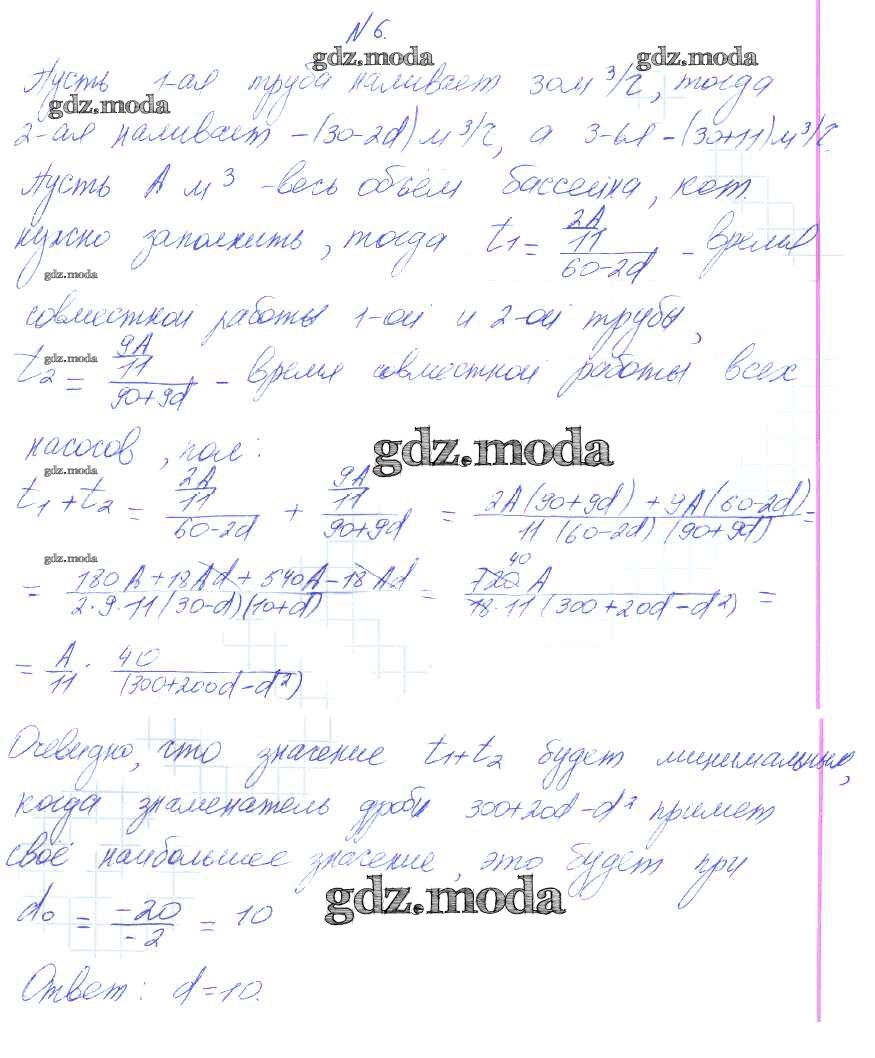 № 6.
gdz.moda gdz.moda
Пусть 1-ая труба наливает 30м³/г, тогда
gdz.moda
2-ая наливает – (30-2d) м³/г, а 3-ья – (30+11) м³/г.
Пусть A м³ - весь объём бассейна, кот.
нужно заполнить, тогда t₁ = (2A/11)/(60-2d) – время
gdz.moda
совместной работы 1-ой и 2-ой трубы,
gdz.moda
t₂ = (9A/11)/(90+9d) – время совместной работы всех
насосов, пол:
gdz.moda
gdz.moda
t₁+t₂ = (2A/11)/(60-2d) + (9A/11)/(90+9d) = (2A(90+9d) + 9A(60-2d))/(11(60-2d)(90+9d)) =
gdz.moda
= (180A+18Ad+540A-18Ad)/(2·9·11(30-d)(10+d)) = 40 720A/(18·11(300+20d-d²)) =
= A/11 · 40/(300+200d-d²)
Очевидно, что значение t₁+t₂ будет минимальным,
когда знаменатель дроби 300+20d-d² примет
своё наибольшее значение, это будет при
gdz.moda
d₀ = -20/-2 = 10
Ответ: d=10.